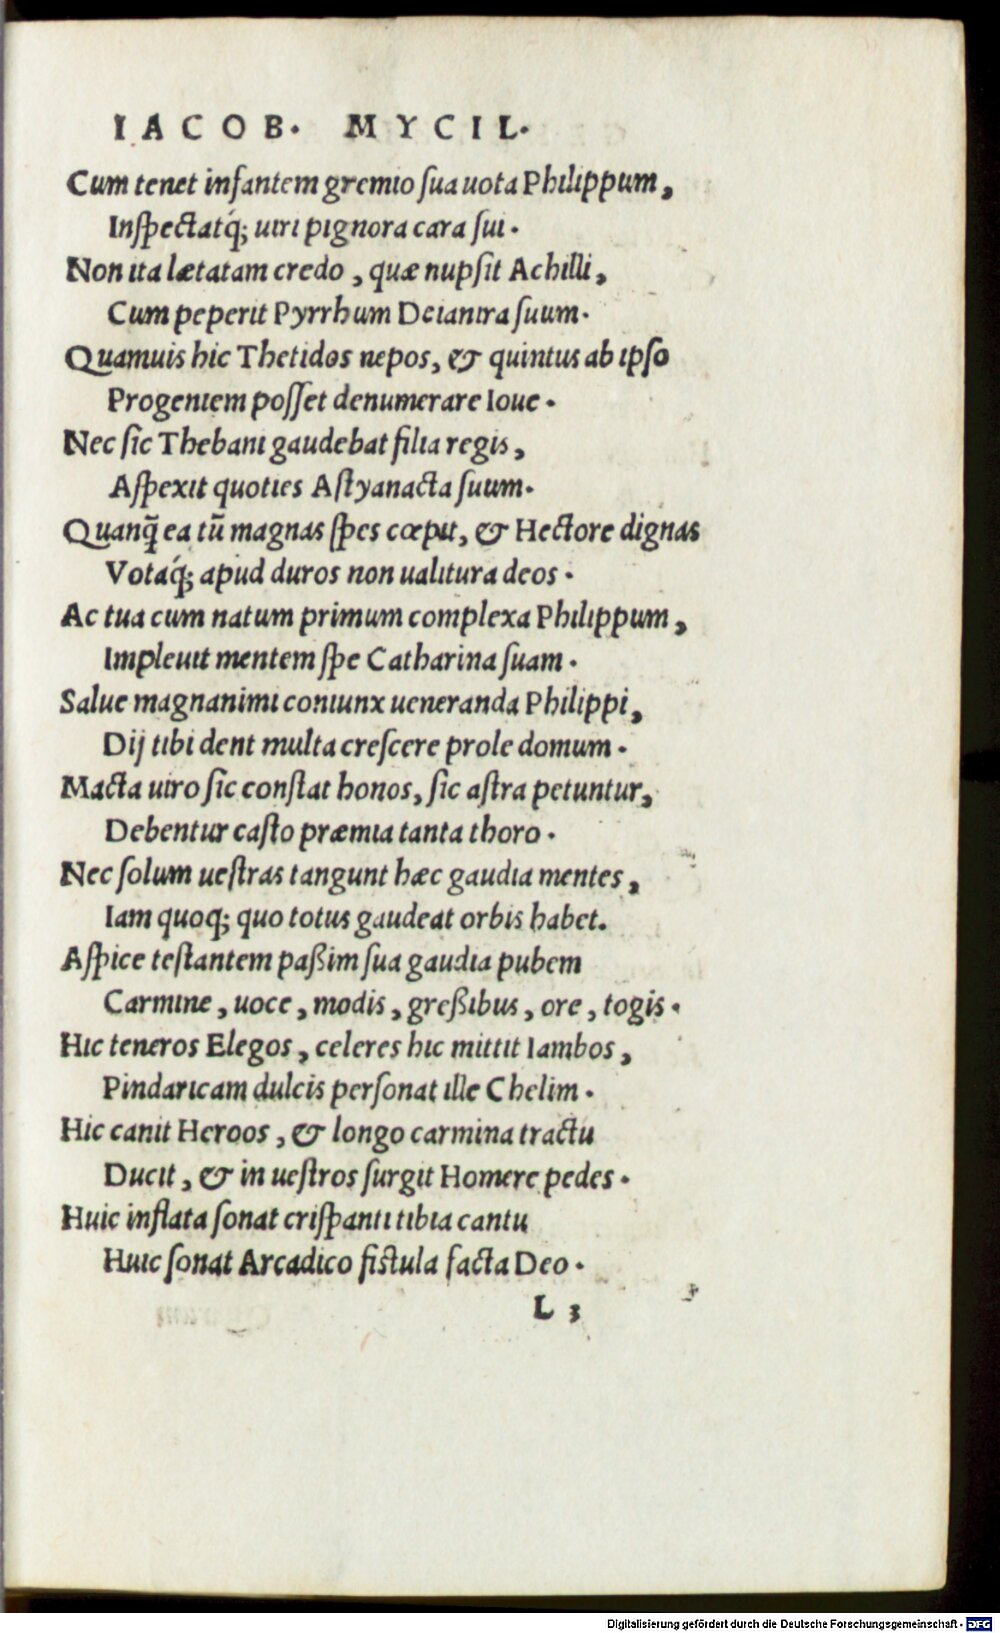 IACOB. MYCIL.
Cum tenet infantem gremio ſua uota Philippum,
Inſpectatq́; uiri pignora cara ſui.
Non ita lætatam credo, quæ nupſit Achilli,
Cum peperit Pyrrhum Deianira ſuum.
Quamuis hic Thetidos nepos, & quintus ab ipſo
Progeniem poſſet denumerare Ioue.
Nec ſic Thebani gaudebat filia regis,
Aſpexit quoties Aſtyanacta ſuum.
Quanq̃ ea tū magnas ſpes cœpit, & Hectore dignas
Votaq́; apud duros non ualitura deos.
Ac tua cum natum primum complexa Philippum,
Impleuit mentem ſpe Catharina ſuam.
Salue magnanimi coniunx ueneranda Philippi,
Dij tibi dent multa creſcere prole domum.
Macta uiro ſic conſtat honos, ſic aſtra petuntur,
Debentur caſto præmia tanta thoro.
Nec ſolum ueſtras tangunt hæc gaudia mentes,
Iam quoq; quo totus gaudeat orbis habet.
Aſpice teſtantem paßim ſua gaudia pubem
Carmine, uoce, modis, greßibus, ore, togis.
Hic teneros Elegos, celeres hic mittit Iambos,
Pindaricam dulcis perſonat ille Chelim.
Hic canit Heroos, & longo carmina tractu
Ducit, & in ueſtros ſurgit Homere pedes.
Huic inflata ſonat criſpanti tibia cantu
Huic ſonat Arcadico fiſtula facta Deo.
L 3
Digitalisierung gefördert durch die Deutsche Forschungsgemeinschaft - DFG